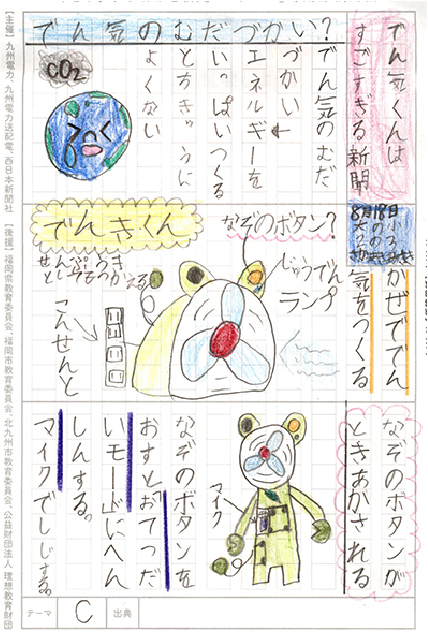 でん気くんは
すごすぎる新聞
でん気のむだづかい?
でん気のむだ
づかい
エネルギーを
いっぱいつくる
とちきゅうに
よくない
CO₂
8月18日
小3
かぜででん
気をつくる
なぞのボタン?
じゅうでん
ランプ
でんきくん
こんせんと
なぞのボタンが
ときあかされる
マイク
なぞのボタンを
おすと「おてつだ
いモード」にへん
しんする。
マイクでしじする。
テーマ
C
出典
【主催】九州電力、九州電力送配電、西日本新聞社
【後援】福岡県教育委員会、福岡市教育委員会、北九州市教育委員会、公益財団法人 理想教育財団